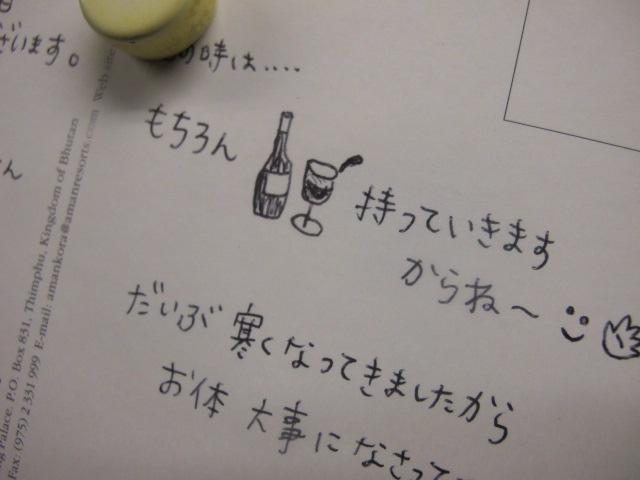 ざいます。
の時は....
もちろん
持っていきます
からね～
だいぶ 寒くなってきましたから
お体 大事になさって
Palace, P.O. Box 831, Thimphu, Kingdom of Bhutan
Fax: (975) 2 331 999 E-mail: amankora@amanresorts.com Web site